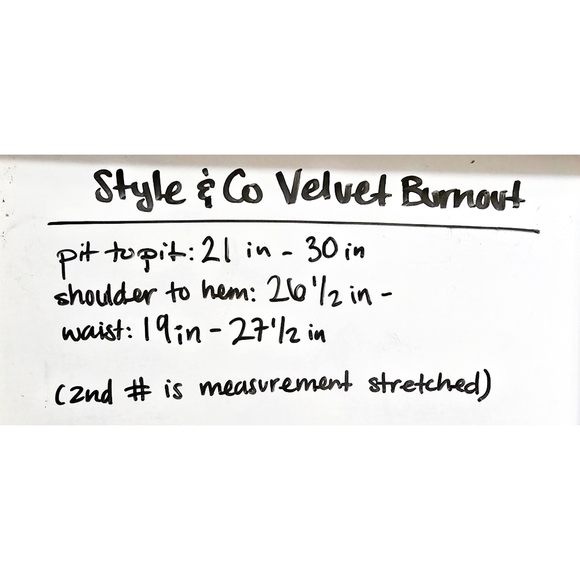 Style & Co Velvet Burnout
pit to pit: 21 in - 30 in
shoulder to hem: 26 1/2 in -
waist: 19 in - 27 1/2 in
(2nd # is measurement stretched)